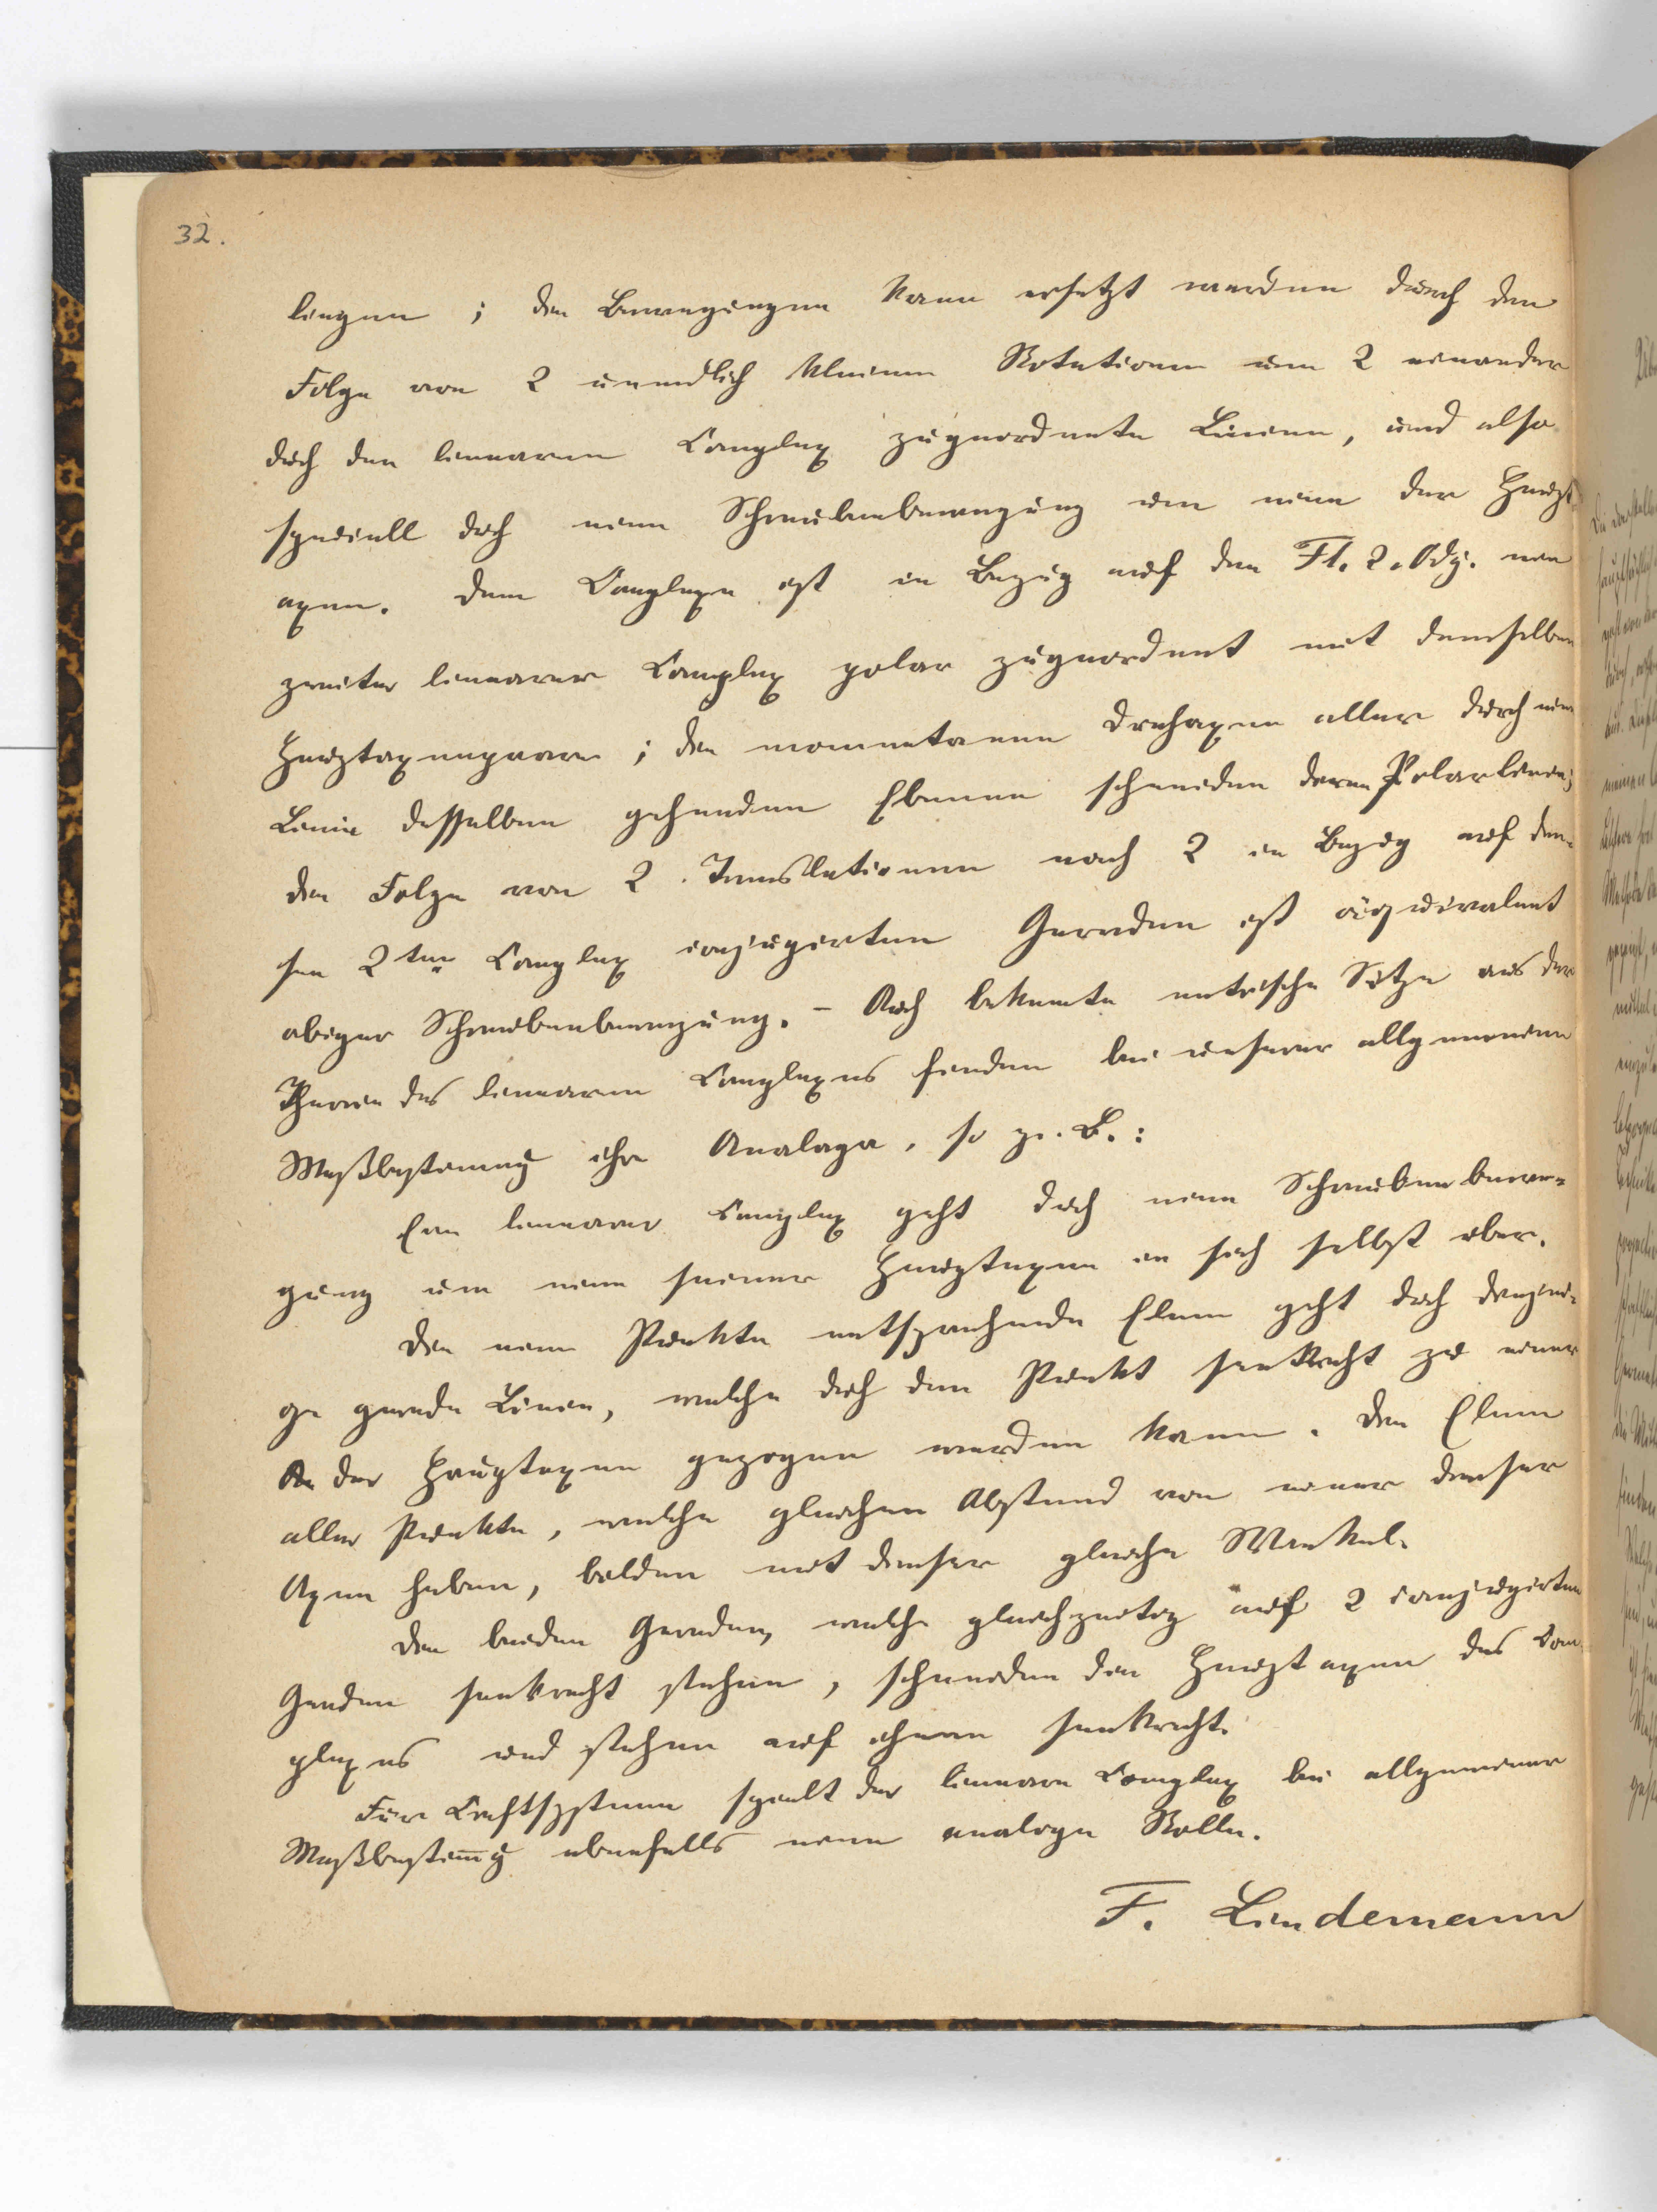 32.
liegen; die Bewegungen kann ersetzt werden durch die
Folge von 2 unendlich kleinen Rotationen um 2 einander
dch den linearen Complex zugeordnete Linien, und also
speciell dch eine Schraubenbewegung um eine der Haupt-
axen. Dem Complexe ist in Bezug auf die Fl. 2. Odg. ein
zweiter linearer Complex polar zugeordnet mit demselben
Hauptaxenpaare; die momentanen Drehaxen aller durch eine
Linie desselben gehenden Ebenen schneiden deren Polarlinie;
die Folge von 2 Translationen nach 2 in Bezug auf die-
sen 2ten Complex conjugirten Geraden ist äquivalent
obiger Schraubenbewegung. – Auch bekannte metrische Sätze aus der
Theorie des linearen Complexes finden bei unserer allgemeinen
Maßbestimmg ihre Analoga, so z. B.:
Ein linearer Complex geht dch eine Schraubenbewe-
gung um eine seiner Hauptaxen in sich selbst über.
Die einem Punkte entsprechende Ebene geht dch diejeni-
ge gerade Linie, welche dch den Punkt senkrecht zu einer
der Hauptaxen gezogen werden kann. Die Ebenen
aller Punkte, welche gleichen Abstand von einer dieser
Axen haben, bilden mit dieser gleiche Winkel.
Die beiden Geraden, welche gleichzeitig auf 2 conjugirten
Geraden senkrecht stehen, schneiden die Hauptaxen des Com-
plexes und stehen auf ihnen senkrecht.
Für Kraftsysteme spielt der lineare Complex bei allgemeiner
Maßbestim̅g ebenfalls eine analoge Rolle.
F. Lindemann